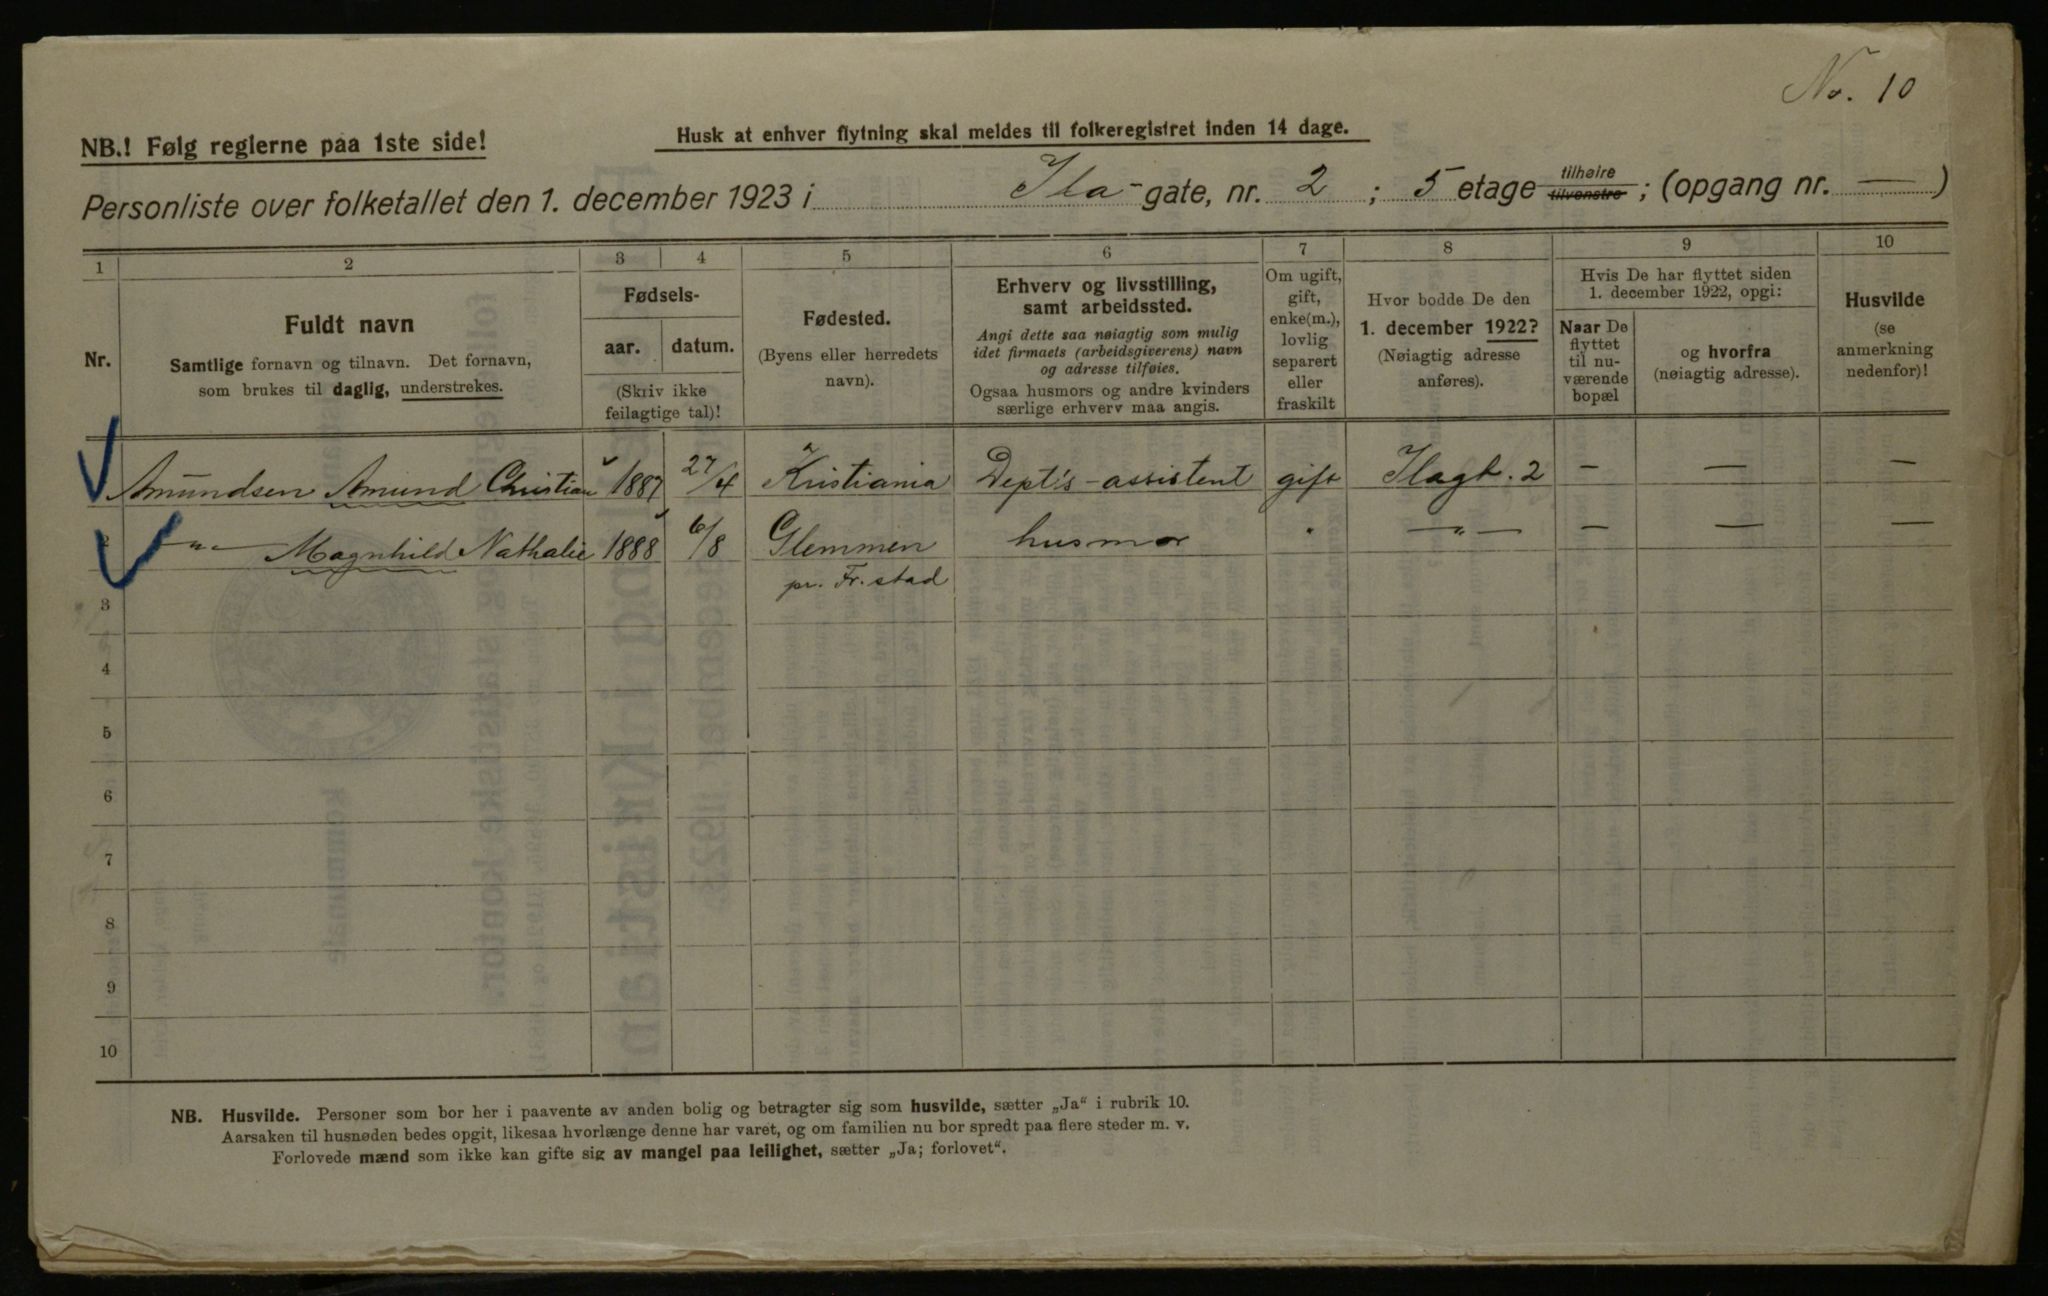 No. 10
NB.! Følg reglerne paa 1ste side!
Husk at enhver flytning skal meldes til folkeregistret inden 14 dage.
Personliste over folketallet den 1. december 1923 i Ila-gate, nr. 2 ; 5 etage tilhøire tilvenstre ; (opgang nr. — )
1 2 3 4 5 6 7 8 9 10
Nr.
Fuldt navn
Samtlige fornavn og tilnavn. Det fornavn,
som brukes til daglig, understrekes.
Fødsels-
aar. datum.
(Skriv ikke
feilagtige tal)!
Fødested.
(Byens eller herredets
navn).
Erhverv og livsstilling,
samt arbeidssted.
Angi dette saa nøiagtig som mulig
idet firmaets (arbeidsgiverens) navn
og adresse tilføies.
Ogsaa husmors og andre kvinders
særlige erhverv maa angis.
Om ugift,
gift,
enke(m.),
lovlig
separert
eller
fraskilt
Hvor bodde De den
1. december 1922?
(Nøiagtig adresse
anføres).
Hvis De har flyttet siden
1. december 1922, opgi:
Naar De
flyttet
til nu-
værende
bopæl
og hvorfra
(nøiagtig adresse).
Husvilde
(se
anmerkning
nedenfor)!
Amundsen Amund Christian 1887 27/4 Kristiania Dept's-assistent gift Ilagt. 2 — — —
2 —"— Magnhild Nathalie 1888 6/8 Glemmen husmor " —"— — — —
pr. Fr.stad
3
4
5
6
7
8
9
10
NB. Husvilde. Personer som bor her i paavente av anden bolig og betragter sig som husvilde, sætter „Ja“ i rubrik 10.
Aarsaken til husnøden bedes opgit, likesaa hvorlænge denne har varet, og om familien nu bor spredt paa flere steder m. v.
Forlovede mænd som ikke kan gifte sig av mangel paa leilighet, sætter „Ja; forlovet“.